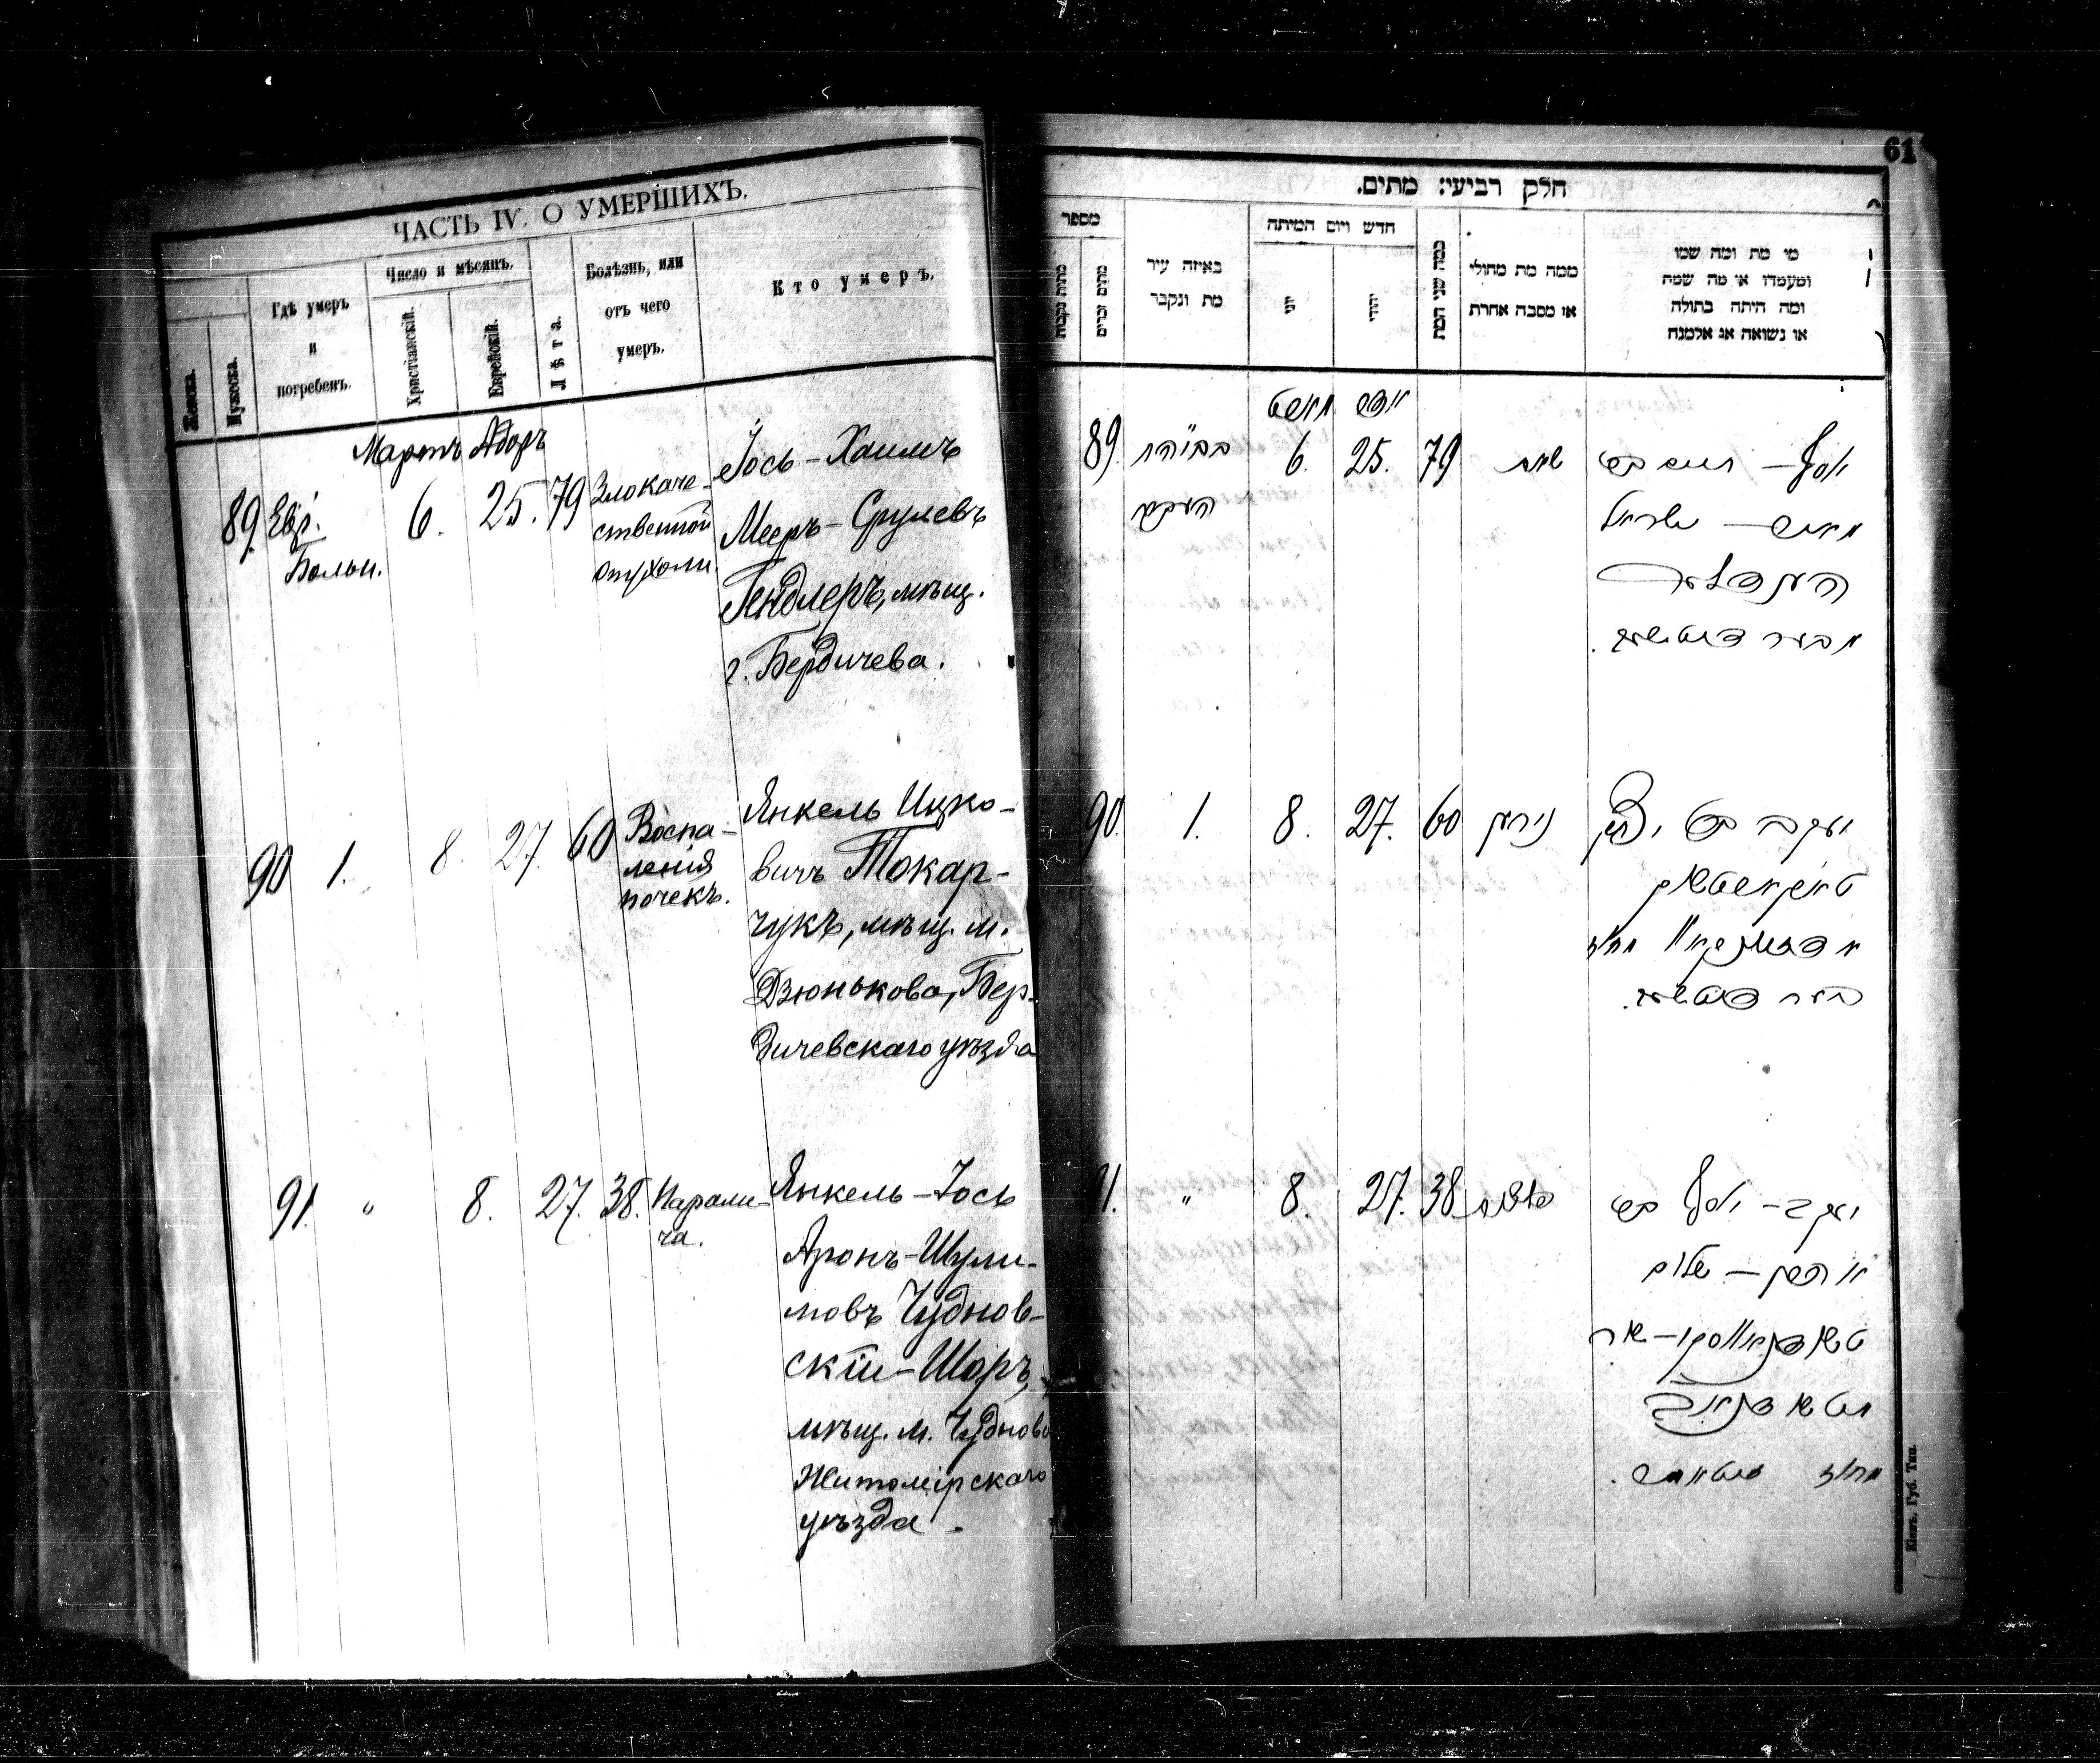 ЧАСТЬ IV. О УМЕРШИХЪ.
Женска.
Мужеска.
Гдѣ умеръ
и
погребенъ.
Число и мѣсяцъ.
Христіанскій.
Еврейскій.
Лѣта.
Болѣзнь, или
отъ чего
умеръ.
Кто умеръ.
Мартъ Адоръ
89. Евр.
Больн.
6. 25. 79
Злокаче-
ственной
опухоли.
Іось-Хаимъ
Мееръ-Срулевъ
Гендлеръ, мѣщ.
г. Бердичева.
90 1. 8. 27. 60
Воспа-
ленія
почекъ.
Янкель Ицко-
вичъ Токар-
чукъ, мѣщ. м.
Дзюнькова, Бер-
дичевскаго уѣзда
91. " 8. 27. 38.
Парали-
ча.
Янкель-Іось
Аронъ-Шули-
мовъ Чуднов-
скій-Шоръ,
мѣщ. м. Чуднова
Житомірскаго
уѣзда.
61
חלק רביעי: מתים.
מספר
מתות נקבות
מתים זכרים
באיזה עיר
מת ונקבר
חדש ויום המיתה
יוני
יהודי
כמה שני המת
ממה מת מחולי
או מסבה אחרת
מי מת ומה שמו
ומעמדו או מה שמה
ומה היתה בתולה
או נשואה או אלמנה
89. 6. 25. 79
יוסף – חיים בר
מאיר – ישראל
הענדלער
90. 1. 8. 27. 60
יעקב בר יצחק
91. " 8. 27. 38
יעקב – יוסף בר
אהרן – שלום
Кіевъ. Губ. Тип.